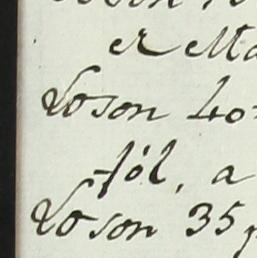 er
Loson 40
fól, a
Loson 35